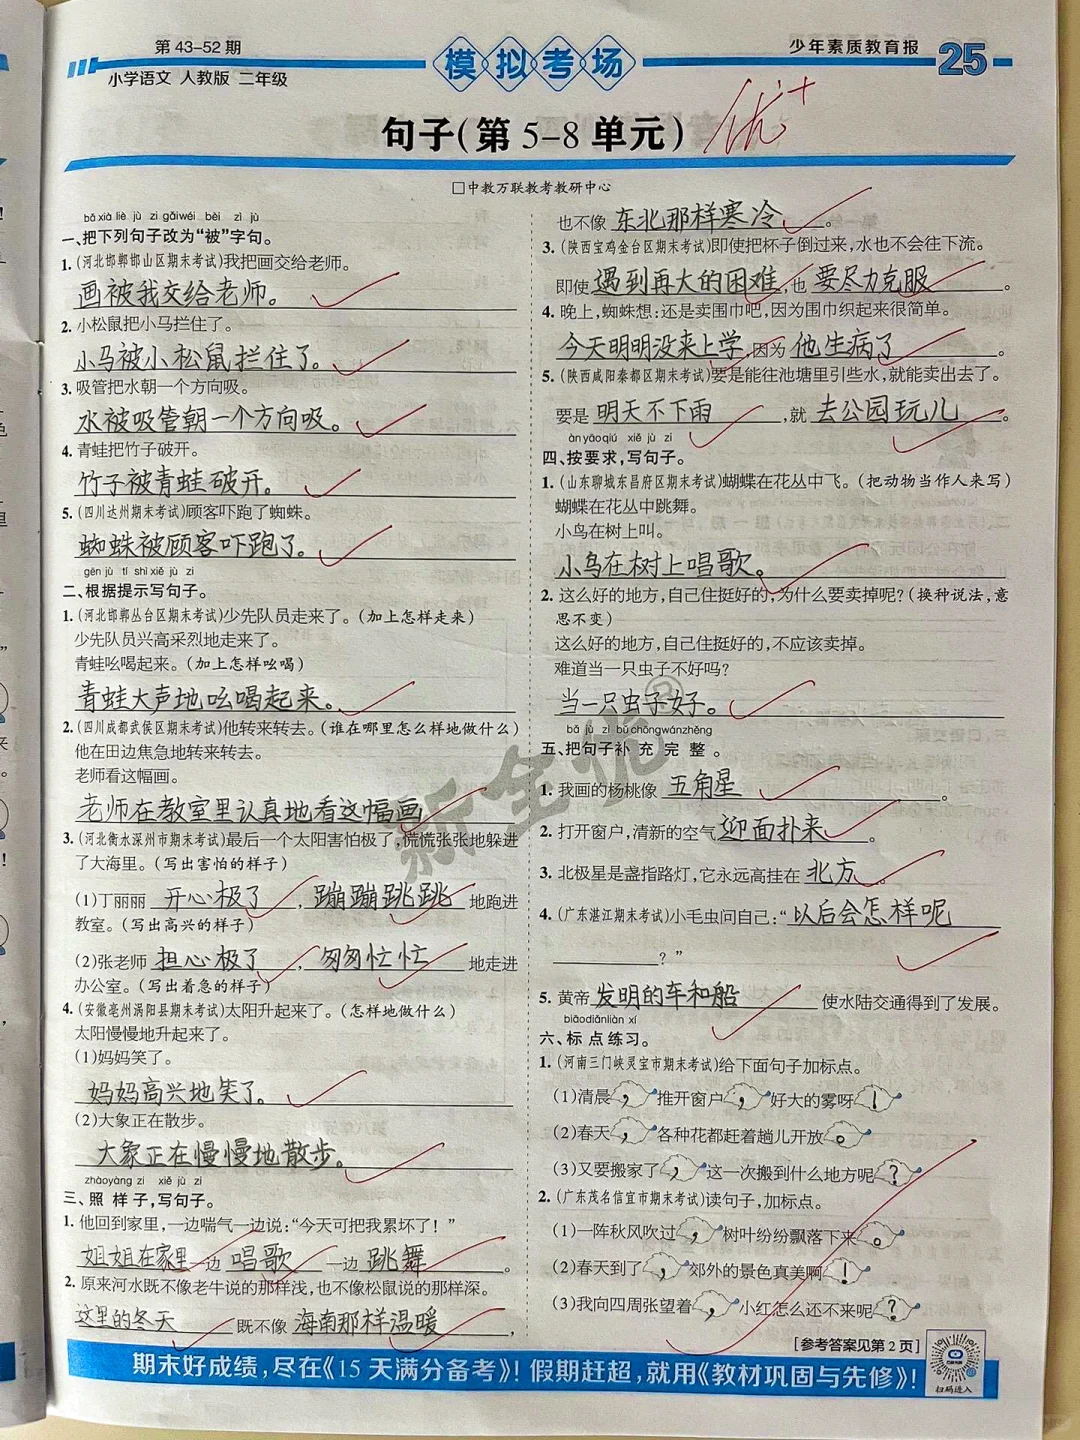 第 43-52 期
小学语文 人教版 二年级
模拟考场
少年素质教育报
25
句子(第 5-8 单元)
优+
□中教万联教考教研中心
bǎ xià liè jù zi gǎiwéi bèi zì jù
一、把下列句子改为“被”字句。
1.(河北邯郸邯山区期末考试)我把画交给老师。
画被我交给老师。
2.小松鼠把小马拦住了。
小马被小松鼠拦住了。
3.吸管把水朝一个方向吸。
水被吸管朝一个方向吸。
4.青蛙把竹子破开。
竹子被青蛙破开。
5.(四川达州期末考试)顾客吓跑了蜘蛛。
蜘蛛被顾客吓跑了。
gēn jù tí shì xiě jù zi
二、根据提示写句子。
1.(河北邯郸丛台区期末考试)少先队员走来了。(加上怎样走来)
少先队员兴高采烈地走来了。
青蛙吆喝起来。(加上怎样吆喝)
青蛙大声地吆喝起来。
2.(四川成都武侯区期末考试)他转来转去。(谁在哪里怎么样地做什么)
他在田边焦急地转来转去。
老师看这幅画。
老师在教室里认真地看这幅画
3.(河北衡水深州市期末考试)最后一个太阳害怕极了,慌慌张张地躲进
了大海里。(写出害怕的样子)
(1)丁丽丽 开心极了 , 蹦蹦跳跳 地跑进
教室。(写出高兴的样子)
(2)张老师 担心极了 , 匆匆忙忙 地走进
办公室。(写出着急的样子)
4.(安徽亳州涡阳县期末考试)太阳升起来了。(怎样地做什么)
太阳慢慢地升起来了。
(1)妈妈笑了。
妈妈高兴地笑了。
(2)大象正在散步。
大象正在慢慢地散步。
zhàoyàng zi xiě jù zi
三、照样子,写句子。
1.他回到家里,一边喘气一边说:“今天可把我累坏了!”
姐姐在家里一边 唱歌 一边 跳舞 。
2.原来河水既不像老牛说的那样浅,也不像松鼠说的那样深。
这里的冬天 既不像 海南那样温暖 ,
也不像 东北那样寒冷 。
3.(陕西宝鸡金台区期末考试)即使把杯子倒过来,水也不会往下流。
即使 遇到再大的困难 ,也 要尽力克服 。
4.晚上,蜘蛛想:还是卖围巾吧,因为围巾织起来很简单。
今天明明没来上学 ,因为 他生病了 。
5.(陕西咸阳秦都区期末考试)要是能往池塘里引些水,就能卖出去了。
要是 明天不下雨 ,就 去公园玩儿 。
àn yāoqiú xiě jù zi
四、按要求,写句子。
1.(山东聊城东昌府区期末考试)蝴蝶在花丛中飞。(把动物当作人来写)
蝴蝶在花丛中跳舞。
小鸟在树上叫。
小鸟在树上唱歌。
2.这么好的地方,自己住挺好的,为什么要卖掉呢?(换种说法,意
思不变)
这么好的地方,自己住挺好的,不应该卖掉。
难道当一只虫子不好吗?
当一只虫子好。
bǎ jù zi bǔ chōngwánzhěng
五、把句子补充完整。
1.我画的杨桃像 五角星 。
2.打开窗户,清新的空气 迎面扑来 。
3.北极星是盏指路灯,它永远高挂在 北方 。
4.(广东湛江期末考试)小毛虫问自己:“ 以后会怎样呢
?”
5.黄帝 发明的车和船 使水陆交通得到了发展。
biāodiǎnliàn xí
六、标点练习。
1.(河南三门峡灵宝市期末考试)给下面句子加标点。
(1)清晨 , 推开窗户 , 好大的雾呀 !
(2)春天 , 各种花都赶着趟儿开放 。
(3)又要搬家了 , 这一次搬到什么地方呢 ?
2.(广东茂名信宜市期末考试)读句子,加标点。
(1)一阵秋风吹过 , 树叶纷纷飘落下来 。
(2)春天到了 , 郊外的景色真美啊 !
(3)我向四周张望着 , 小红怎么还不来呢 ?
[参考答案见第 2 页]
新全优
期末好成绩,尽在《15 天满分备考》! 假期赶超,就用《教材巩固与先修》!
扫码进入